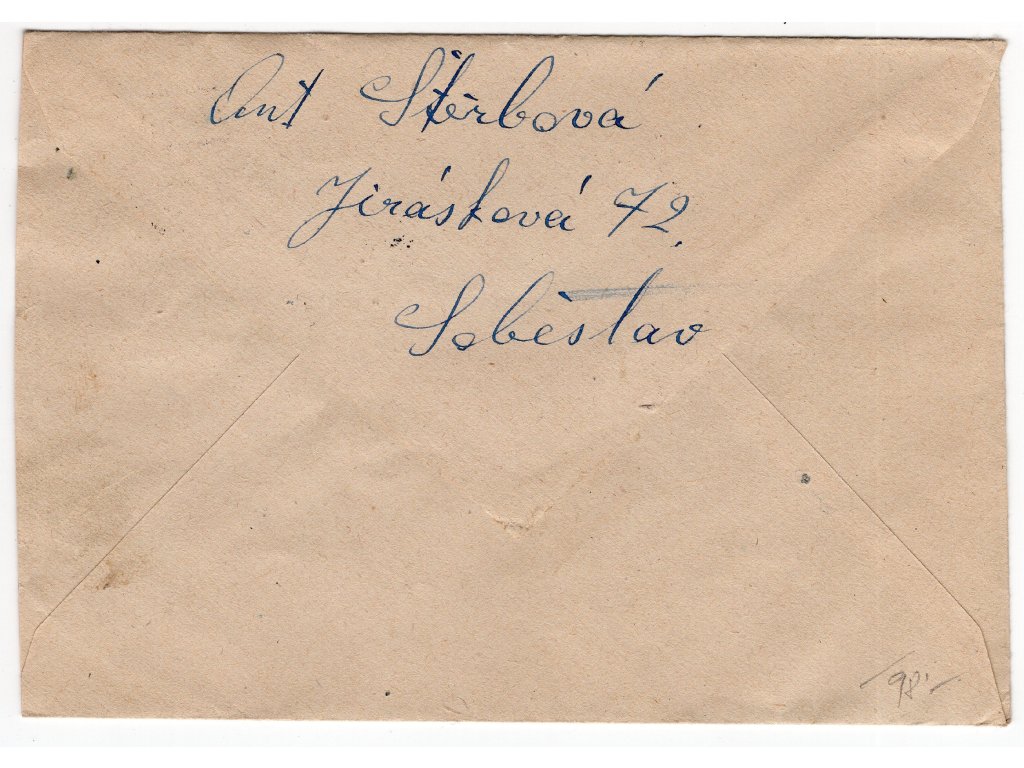 Ant Štěrbová
Jirásková 72,
Soběslav
98.-